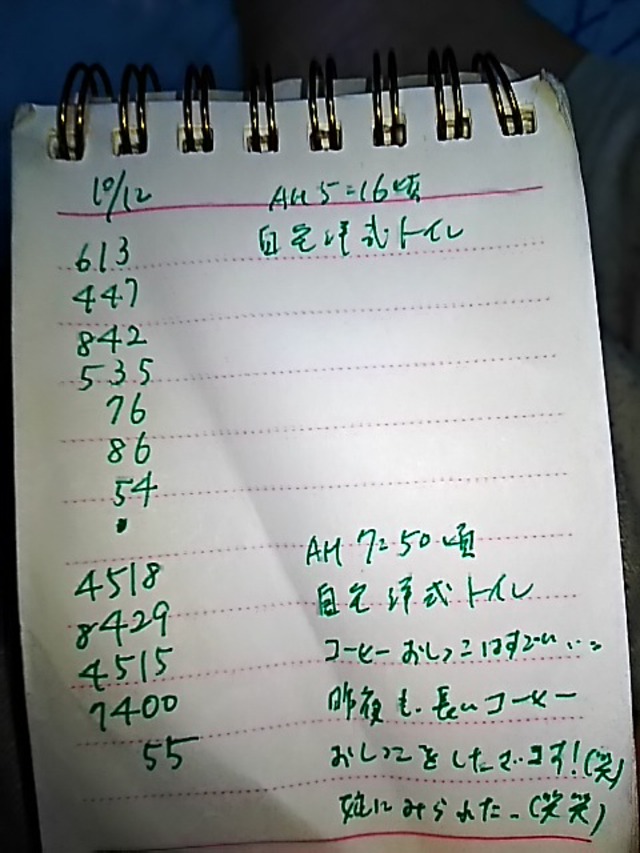 10/12 AM 5=16頃
自宅洋式トイレ
613
447
842
535
76
86
54
AM 7=50頃
4518
自宅洋式トイレ
8429
コーヒーおしっこはすごい...
4515
昨夜も、長いコーヒー
7400
おしっこをしたでござます!(笑)
55
にみられた。(笑笑)